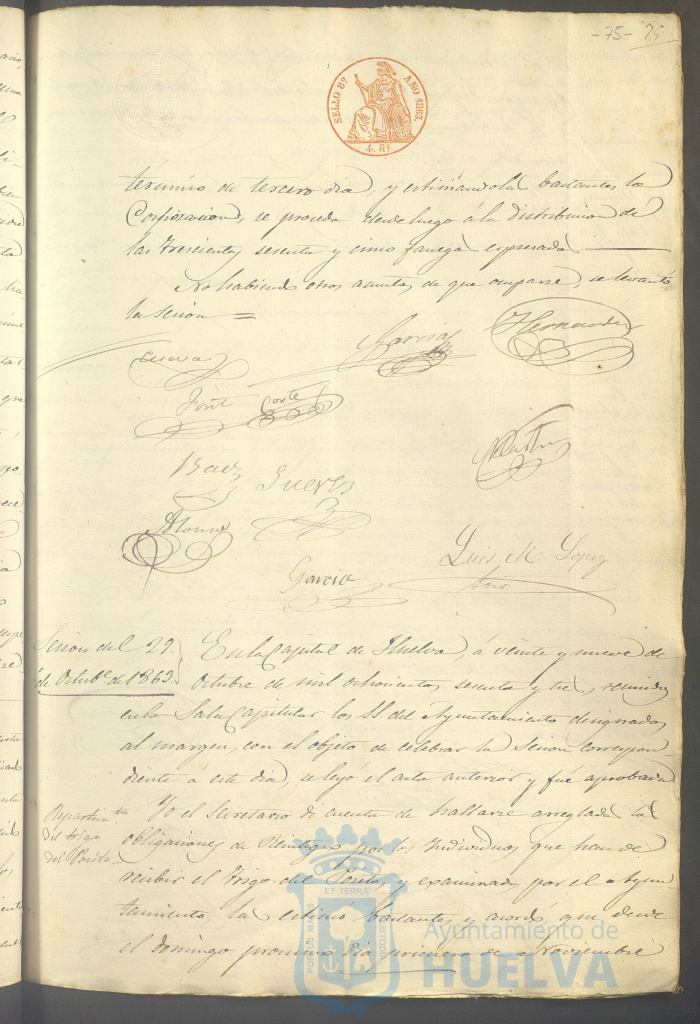 -75- 75
SELLO 8º AÑO 1863.
4. Rs
término de tercero dia, y estimandolas bastantes la
Corporacion, se proceda desde luego á la distribucion de
las trescientas sesenta y cinco fanegas espresadas
No habiendo otros asuntos de que ocuparse, se levantó
la sesion =
García Hernandez
Font Corte
Baez Gueves
Alonso
Garcia Luis M. Lopez
Srio
Sesion del 29. En la Capital de Huelva, á veinte y nueve de
de Octubre de 1863. Octubre de mil ochocientos sesenta y tres, reunidos
en la Sala Capitular los SS. del Ayuntamiento designados
al margen, con el objeto de celebrar la Sesion correspon
diente a este dia, se leyó el acta anterior y fue aprobada
Repartimto Yo el Secretario di cuenta de hallarse arregladas las
del trigo obligaciones de Reintegro por los Individuos que han de
del Posito recibir el trigo del Posito, y examinadas por el Ayun
tamiento, las estimó bastantes y acordó que desde
el domingo procsimo dia primero de Noviembre
PORTUS MARIS ET TERRAE CUSTODIA
Ayuntamiento de
HUELVA